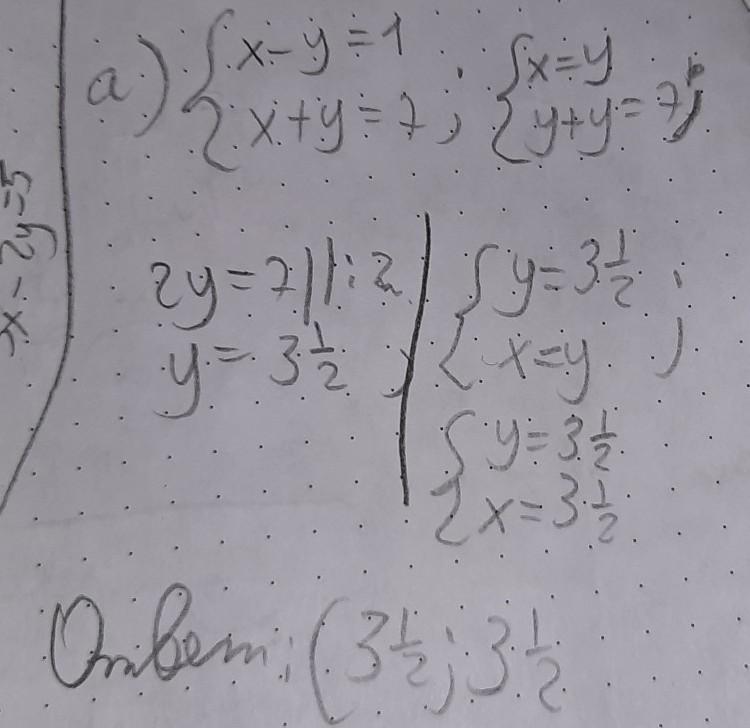 а) { x - y = 1
{ x + y = 7 ;
{ x = y
{ y + y = 7 ;
2y = 7 | | : 2
y = 3 1/2 ;
{ y = 3 1/2
{ x = y ;
{ y = 3 1/2
{ x = 3 1/2
Ответ: (3 1/2 ; 3 1/2
x - 2y = 5